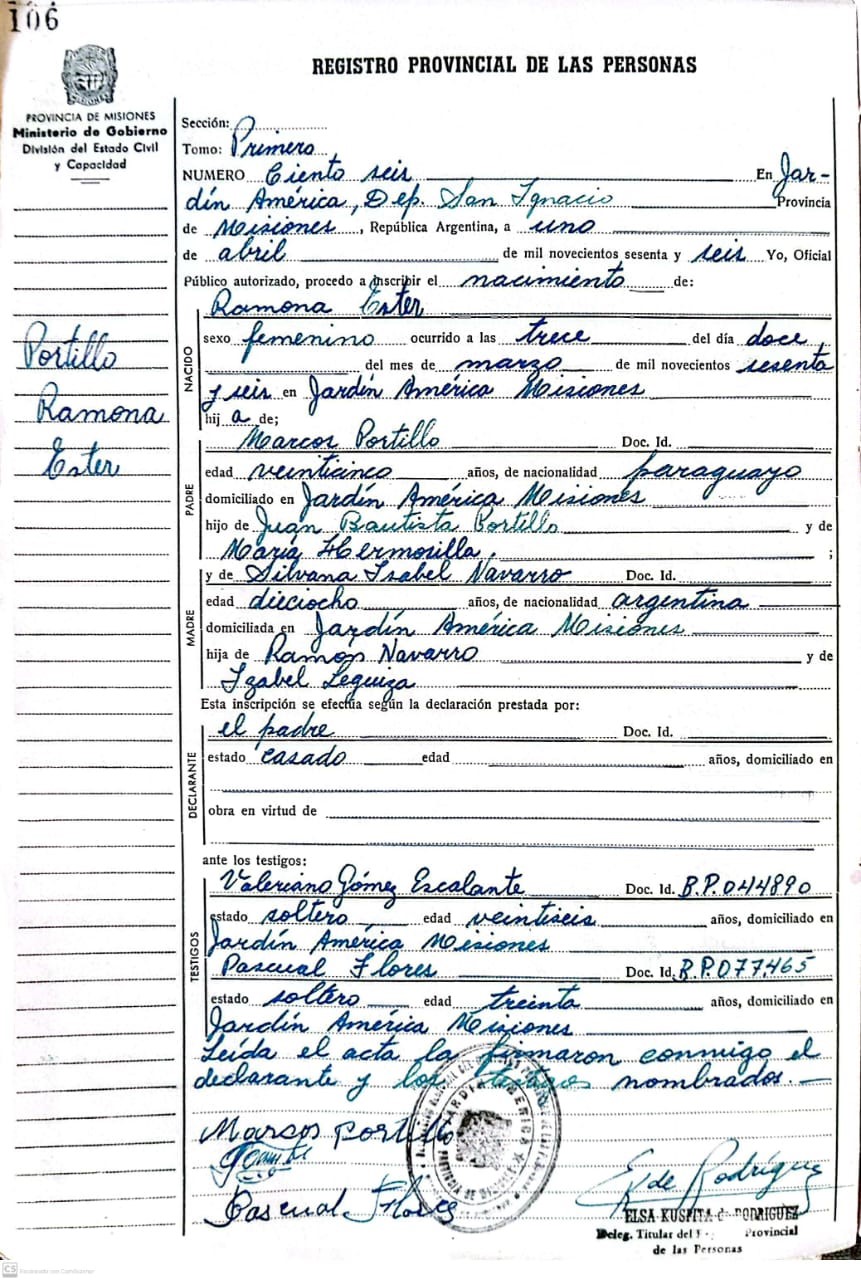 106
REGISTRO PROVINCIAL DE LAS PERSONAS
PROVINCIA DE MISIONES
Ministerio de Gobierno
División del Estado Civil
y Capacidad
Portillo
Ramona
Ester
Sección:
Tomo: Primero
NUMERO Ciento seis En Jar-
dín América, Dep. San Ignacio Provincia
de Misiones, República Argentina, a uno
de abril de mil novecientos sesenta y seis Yo, Oficial
Público autorizado, procedo a inscribir el nacimiento de:
Ramona Ester
NACIDO
sexo femenino ocurrido a las trece del día doce
del mes de marzo de mil novecientos sesenta
y seis en Jardín América Misiones
hij a de;
PADRE
Marcos Portillo Doc. Id.
edad veinticinco años, de nacionalidad paraguayo
domiciliado en Jardín América Misiones
hijo de Juan Bautista Portillo y de
María Hermosilla, ;
MADRE
y de Silvana Isabel Navarro Doc. Id.
edad dieciocho años, de nacionalidad argentina
domiciliada en Jardín América Misiones
hija de Ramón Navarro y de
Izabel Leguiza
Esta inscripción se efectúa según la declaración prestada por:
DECLARANTE
el padre Doc. Id.
estado casado edad años, domiciliado en
obra en virtud de
ante los testigos:
TESTIGOS
Valeriano Gómez Escalante Doc. Id. B.P.044890
estado soltero edad veintiseis años, domiciliado en
Jardín América Misiones
Pascual Flores Doc. Id. B.P.077.465
estado soltero edad treinta años, domiciliado en
Jardín América Misiones
Leída el acta la firmaron conmigo el
declarante y los testigos nombrados.—
Marcos Portillo
Pascual Flores
JARDIN AMERICA
PROVINCIA DE MISIONES
E K de Rodríguez
ELSA KUSPITA de RODRIGUEZ
Deleg. Titular del Provincial
de las Personas
CS Escaneado con CamScanner